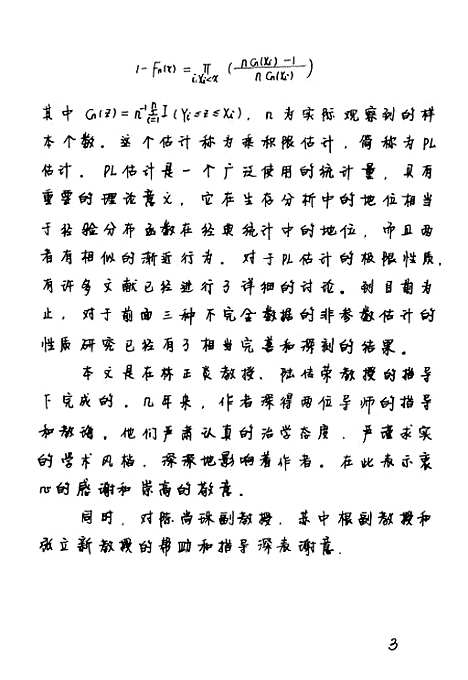 1-Fn(x) = ∏ i:Xi<x ( (nGn(Xi)-1) / (nGn(Xi)) )
其中 Gn(z)=n⁻¹ Σ i=1 n I(Yi≤z≤Xi), n为实际观察到的样
本个数。这个估计称为乘积限估计,简称为PL
估计。PL估计是一个广泛使用的统计量,具有
重要的理论意义,它在生存分析中的地位相当
于经验分布函数在经典统计中的地位,而且两
者有相似的渐近行为。对于PL估计的极限性质,
有许多文献已经进行了详细的讨论。到目前为
止,对于前面三种不完全数据的非参数估计的
性质研究已经有了相当完善和深刻的结果。
本文是在林正炎教授、陆传荣教授的指导
下完成的。几年来,作者深得两位导师的指导
和教诲。他们严肃认真的治学态度,严谨求实
的学术风格,深深地影响着作者。在此表示衷
心的感谢和崇高的敬意。
同时,对陈尚珠副教授,苏中根副教授和
张立新教授的帮助和指导深表谢意.
3